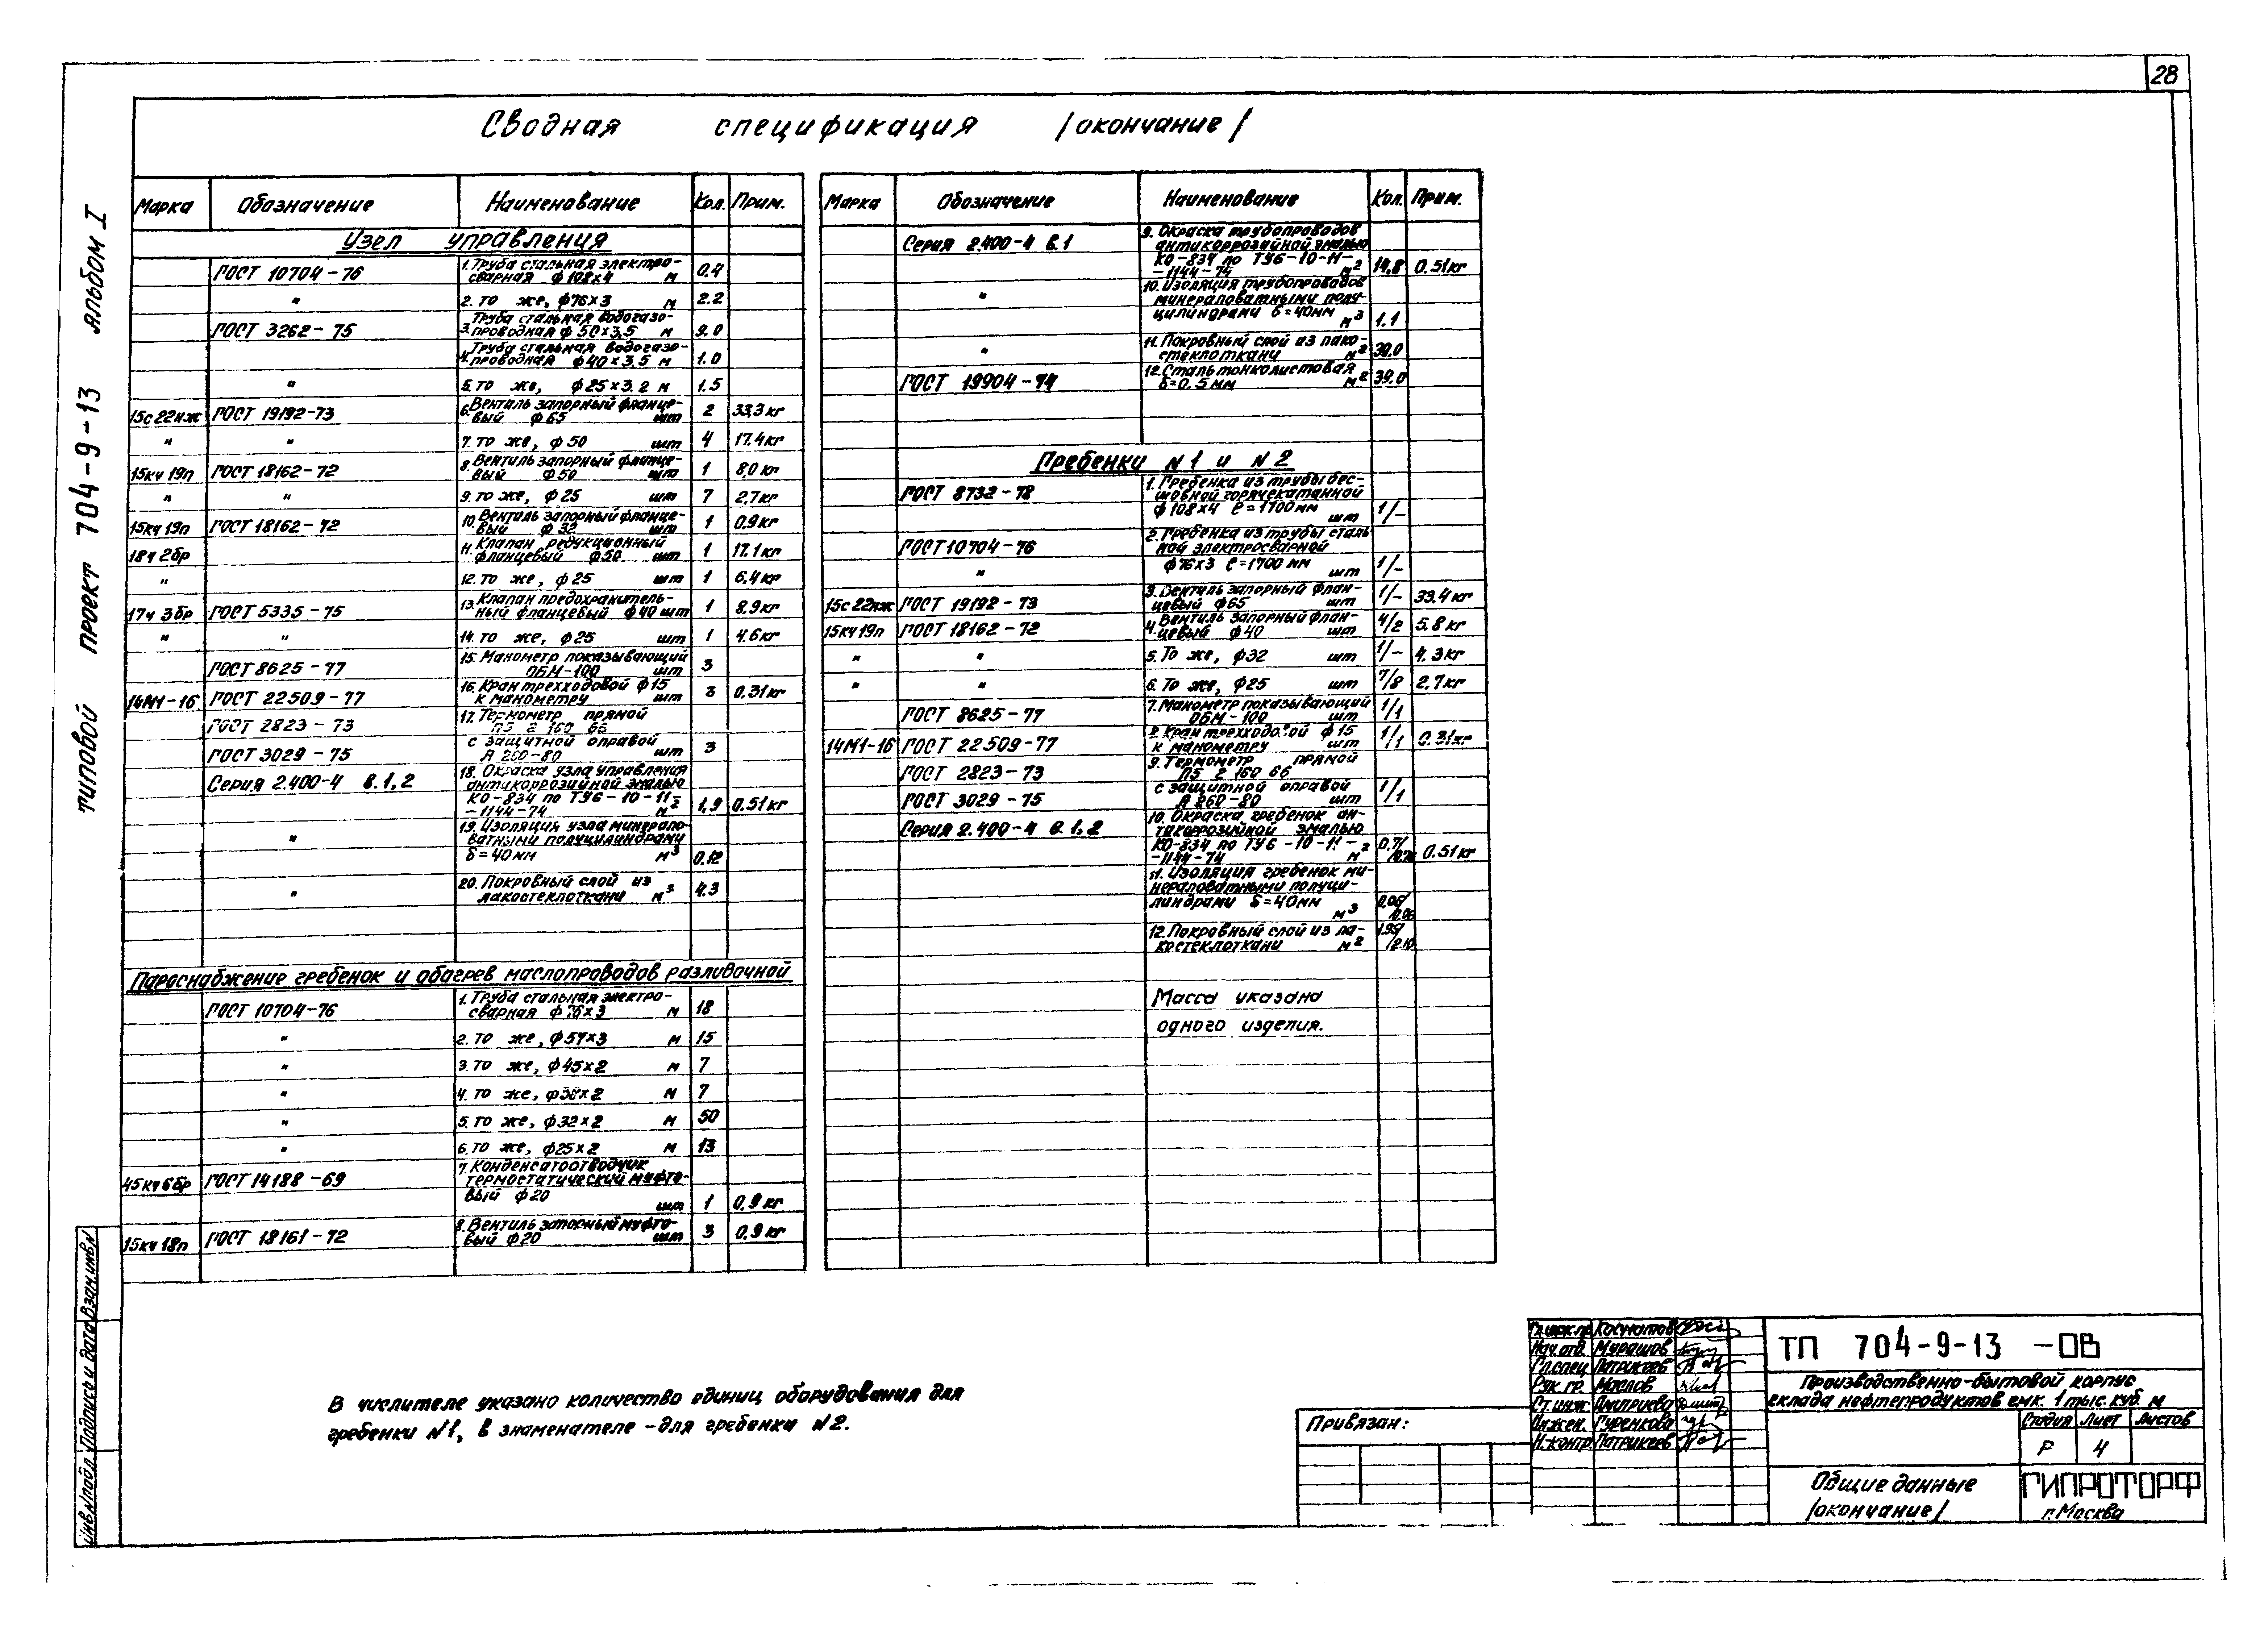 28
Сводная спецификация /окончание/
Типовой проект 704-9-13 Альбом I
Марка Обозначение Наименование Кол. Прим.
Узел управления
ГОСТ 10704-76 1. Труба стальная электро-
сварная ф 108х4 м 0.4
" 2. то же, ф76х3 м 2.2
ГОСТ 3262-75 3. Труба стальная водогазо-
проводная ф 50х3,5 м 9.0
4. Труба стальная водогазо-
проводная ф40х3,5 м 1.0
" 5. то же, ф25х3.2 м 1.5
15с22нж ГОСТ 19192-73 6. Вентиль запорный фланце-
вый ф65 шт 2 33,3кг
" " 7. то же, ф50 шт 4 17.4кг
15кч19п ГОСТ 18162-72 8. Вентиль запорный фланце-
вый ф50 шт 1 8,0кг
" " 9. то же, ф25 шт 7 2,7кг
15кч19п ГОСТ 18162-72 10. Вентиль запорный фланце-
вый ф32 шт 1 0,9кг
18ч2бр 11. Клапан редукционный
фланцевый ф50 шт 1 17.1кг
" 12. то же, ф25 шт 1 6,4кг
17ч3бр ГОСТ 5335-75 13. Клапан предохранитель-
ный фланцевый ф40 шт 1 8,9кг
" " 14. то же, ф25 шт 1 4.6кг
ГОСТ 8625-77 15. Манометр показывающий
ОБМ-100 шт 3
14М1-16 ГОСТ 22509-77 16. Кран трехходовой ф15
к манометру шт 3 0.31кг
ГОСТ 2823-73 17. Термометр прямой
П5 2 160 66
ГОСТ 3029-75 с защитной оправой
А 260-80 шт 3
Серия 2.400-4 в.1,2 18. Окраска узла управления
антикоррозийной эмалью
КО-834 по ТУ6-10-11-
-1144-74 м2 1,9 0.51кг
" 19. Изоляция узла минерало-
ватными полуцилиндрами
δ=40мм м3 0.12
" 20. Покровный слой из
лакостеклоткани м3 4.3
Пароснабжение гребенок и обогрев маслопроводов разливочной
ГОСТ 10704-76 1. Труба стальная электро-
сварная ф76х3 м 18
" 2. то же, ф57х3 м 15
" 3. то же, ф45х2 м 7
" 4. то же, ф38х2 м 7
" 5. то же, ф32х2 м 50
" 6. то же, ф25х2 м 13
45кч6бр ГОСТ 14188-69 7. Конденсатоотводчик
термостатический муфто-
вый ф20
шт 1 0,9кг
15кч18п ГОСТ 18161-72 8. Вентиль запорный муфто-
вый ф20 шт 3 0,9кг
Марка Обозначение Наименование Кол. Прим.
Серия 2.400-4 в.1 9. Окраска трубопроводов
антикоррозийной эмалью
КО-834 по ТУ6-10-11-
-1144-74 м2 14,8 0.51кг
" 10. Изоляция трубопроводов
минераловатными полу-
цилиндрами δ=40мм м3 1.1
" 11. Покровный слой из лако-
стеклоткани м2 39.0
ГОСТ 19904-74 12. Сталь тонколистовая
δ=0.5мм м2 39.0
Гребенки N1 и N2
ГОСТ 8732-78 1. Гребенка из трубы бес-
шовной горячекатанной
ф108х4 ℓ=1700мм шт 1/-
ГОСТ 10704-76 2. Гребенка из трубы сталь
ной электросварной
" ф76х3 ℓ=1700мм шт 1/-
15с22нж ГОСТ 19192-73 3. Вентиль запорный флан-
цевый ф65 шт 1/- 33.4кг
15кч19п ГОСТ 18162-72 4. Вентиль запорный флан-
цевый ф40 шт 4/2 5.8кг
" " 5. То же, ф32 шт 1/- 4.3кг
" " 6. То же, ф25 шт 7/8 2.7кг
ГОСТ 8625-77 7. Манометр показывающий
ОБМ-100 шт 1/1
14М1-16 ГОСТ 22509-77 8. Кран трехходовой ф15
к манометру шт 1/1 0.31кг
ГОСТ 2823-73 9. Термометр прямой
П5 2 160 66
ГОСТ 3029-75 с защитной оправой
А 260-80 шт 1/1
Серия 2.400-4 в.1,2 10. Окраска гребенок ан-
тикоррозийной эмалью
КО-834 по ТУ6-10-11-
-1144-74 м2 0.7/ 0.51кг
11. Изоляция гребенок ми-
нераловатными полуци-
линдрами δ=40мм
м3 0.06/0.06
12. Покровный слой из ла-
костеклоткани м2
Масса указана
одного изделия.
В числителе указано количество единиц оборудования для
гребенки N1, в знаменателе -для гребенки N2.
Привязан:
Гл.инж.пр. Косматов
Нач.отд. Мурашов
Гл.спец. Патрикеев
Рук.гр. Маслов
Ст.инж. Дмитриева
Инжен. Гуренкова
Н.контр. Патрикеев
ТП 704-9-13 -ОВ
Производственно-бытовой корпус
склада нефтепродуктов емк. 1 тыс. куб. м
Стадия Лист Листов
Р 4
Общие данные
/окончание/
ГИПРОТОРФ
г.Москва
Инв.Nподл. Подпись и дата Взам.инв.N